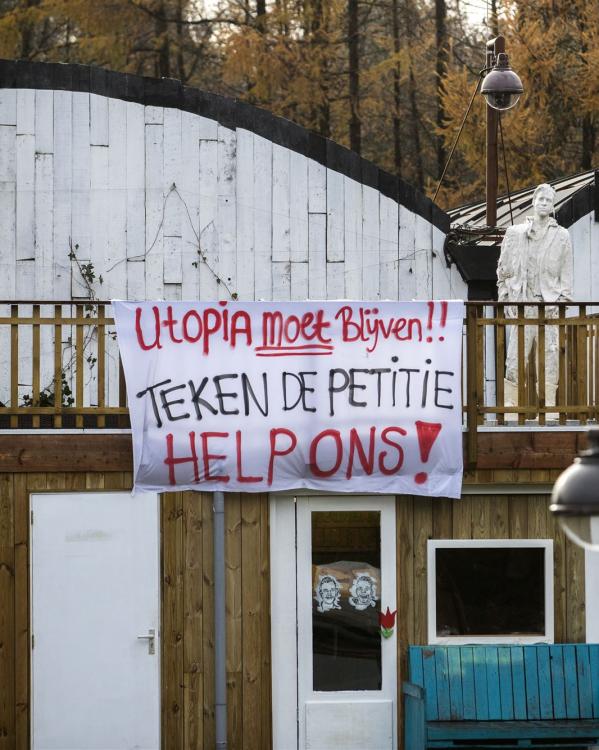 Utopia moet Blijven!!
TEKEN DE PETITIE
HELP ONS!